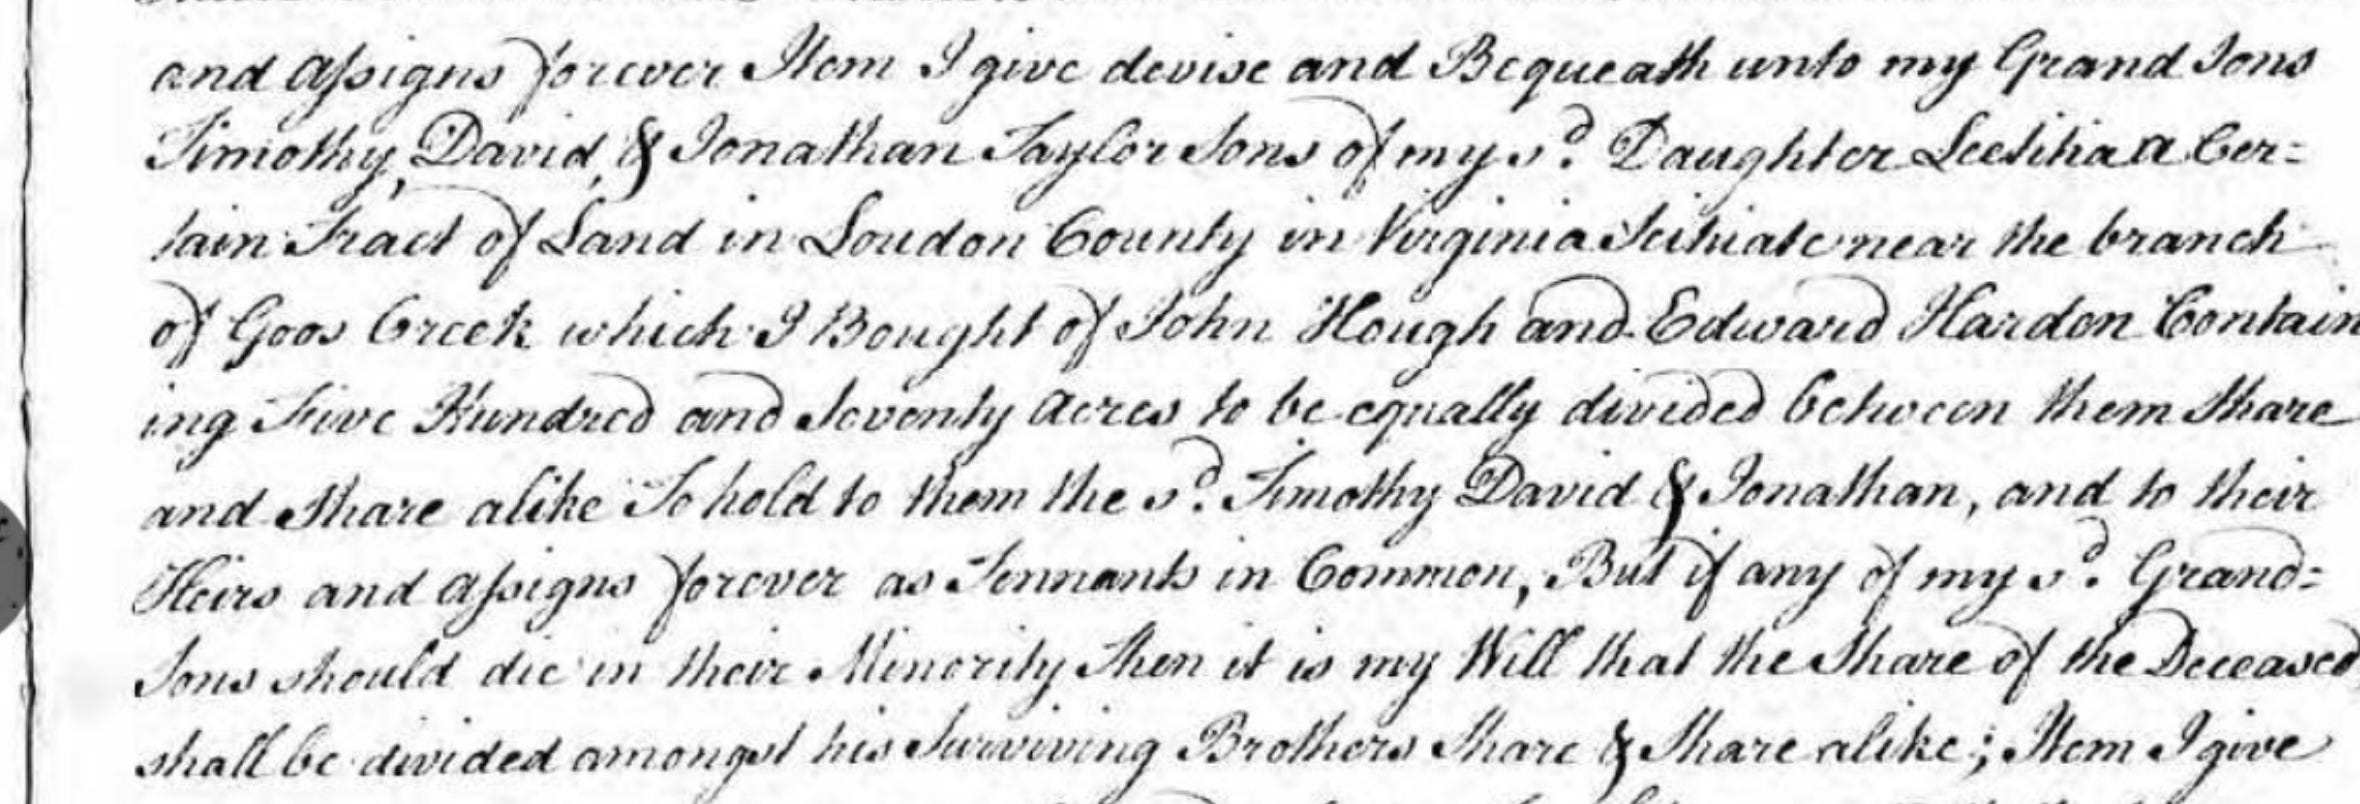 and assigns forever Item I give devise and Bequeath unto my Grand Sons
Timothy, David, & Jonathan Taylor Sons of my sd. Daughter Leetitia a Cer=
tain Tract of Land in Loudon County in Virginia Scituate near the branch
of Goos Creek which I Bought of John Hough and Edward Hardon Contain
ing Five Hundred and Seventy acres to be equally divided between them Share
and Share alike To hold to them the sd. Timothy David & Jonathan, and to their
Heirs and assigns forever as Tennants in Common, But if any of my sd. Grand=
Sons should die in their Minority Then it is my Will that the Share of the Deceased,
shall be divided amongst his Surviving Brothers Share & Share alike; Item I give